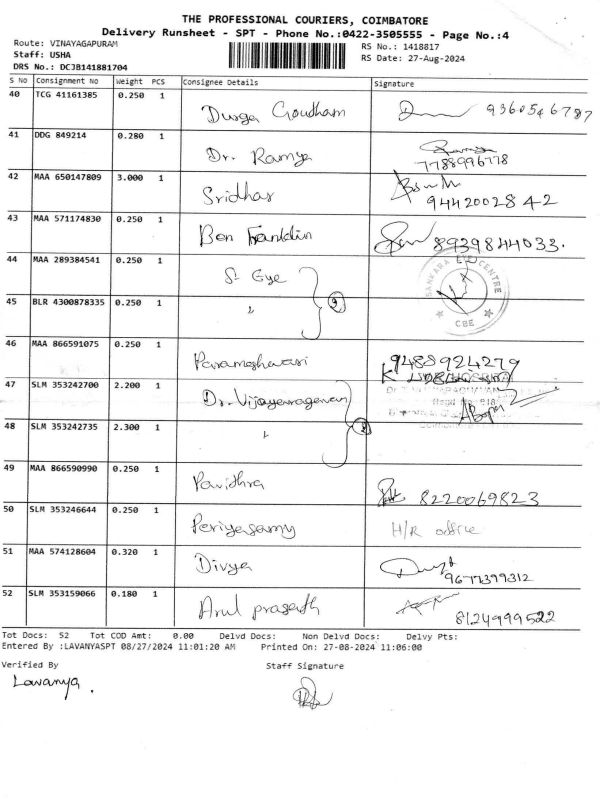 THE PROFESSIONAL COURIERS, COIMBATORE
Delivery Runsheet - SPT - Phone No.:0422-3505555 - Page No.:4
Route: VINAYAGAPURAM
Staff: USHA
DRS No.: DCJB141881704
RS No.: 1418817
RS Date: 27-Aug-2024
S No Consignment No Weight PCS Consignee Details Signature
40 TCG 41161385 0.250 1 Durga Goudham 9360546787
41 DDG 849214 0.280 1 Dr. Ramya 7788996778
42 MAA 650147809 3.000 1 Sridhar 9442002842
43 MAA 571174830 0.250 1 Ben Franklin 8939844033.
44 MAA 289384541 0.250 1 S. Eye
SANKARA EYE CENTRE CBE
45 BLR 4300878335 0.250 1 "
46 MAA 866591075 0.250 1 Parameshwari 9488924279
47 SLM 353242700 2.200 1 Dr. Vijayaragavan
48 SLM 353242735 2.300 1 "
49 MAA 866590990 0.250 1 Pavithra 8220069823
50 SLM 353246644 0.250 1 Periyasamy H/R office
51 MAA 574128604 0.320 1 Divya 9677399312
52 SLM 353159066 0.180 1 Arul prasath 8124999522
Tot Docs: 52 Tot COD Amt: 0.00 Delvd Docs: Non Delvd Docs: Delvy Pts:
Entered By :LAVANYASPT 08/27/2024 11:01:20 AM Printed On: 27-08-2024 11:06:00
Verified By Staff Signature
Lavanya.